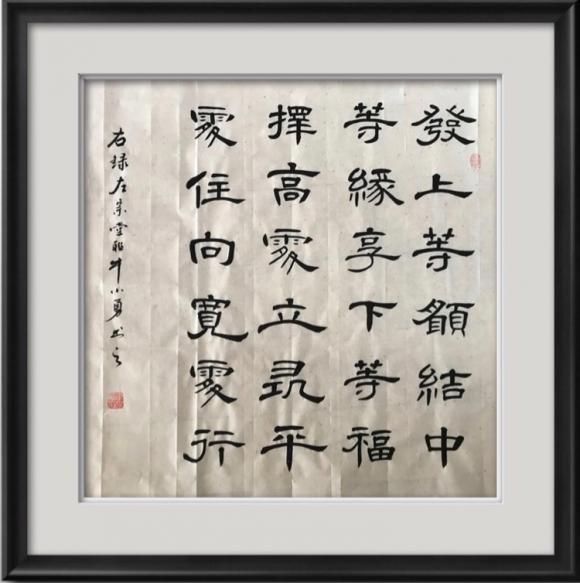 發上等願結中
等緣享下等福
擇高處立尋平
處住向寬處行
右録左宗棠联小勇书之